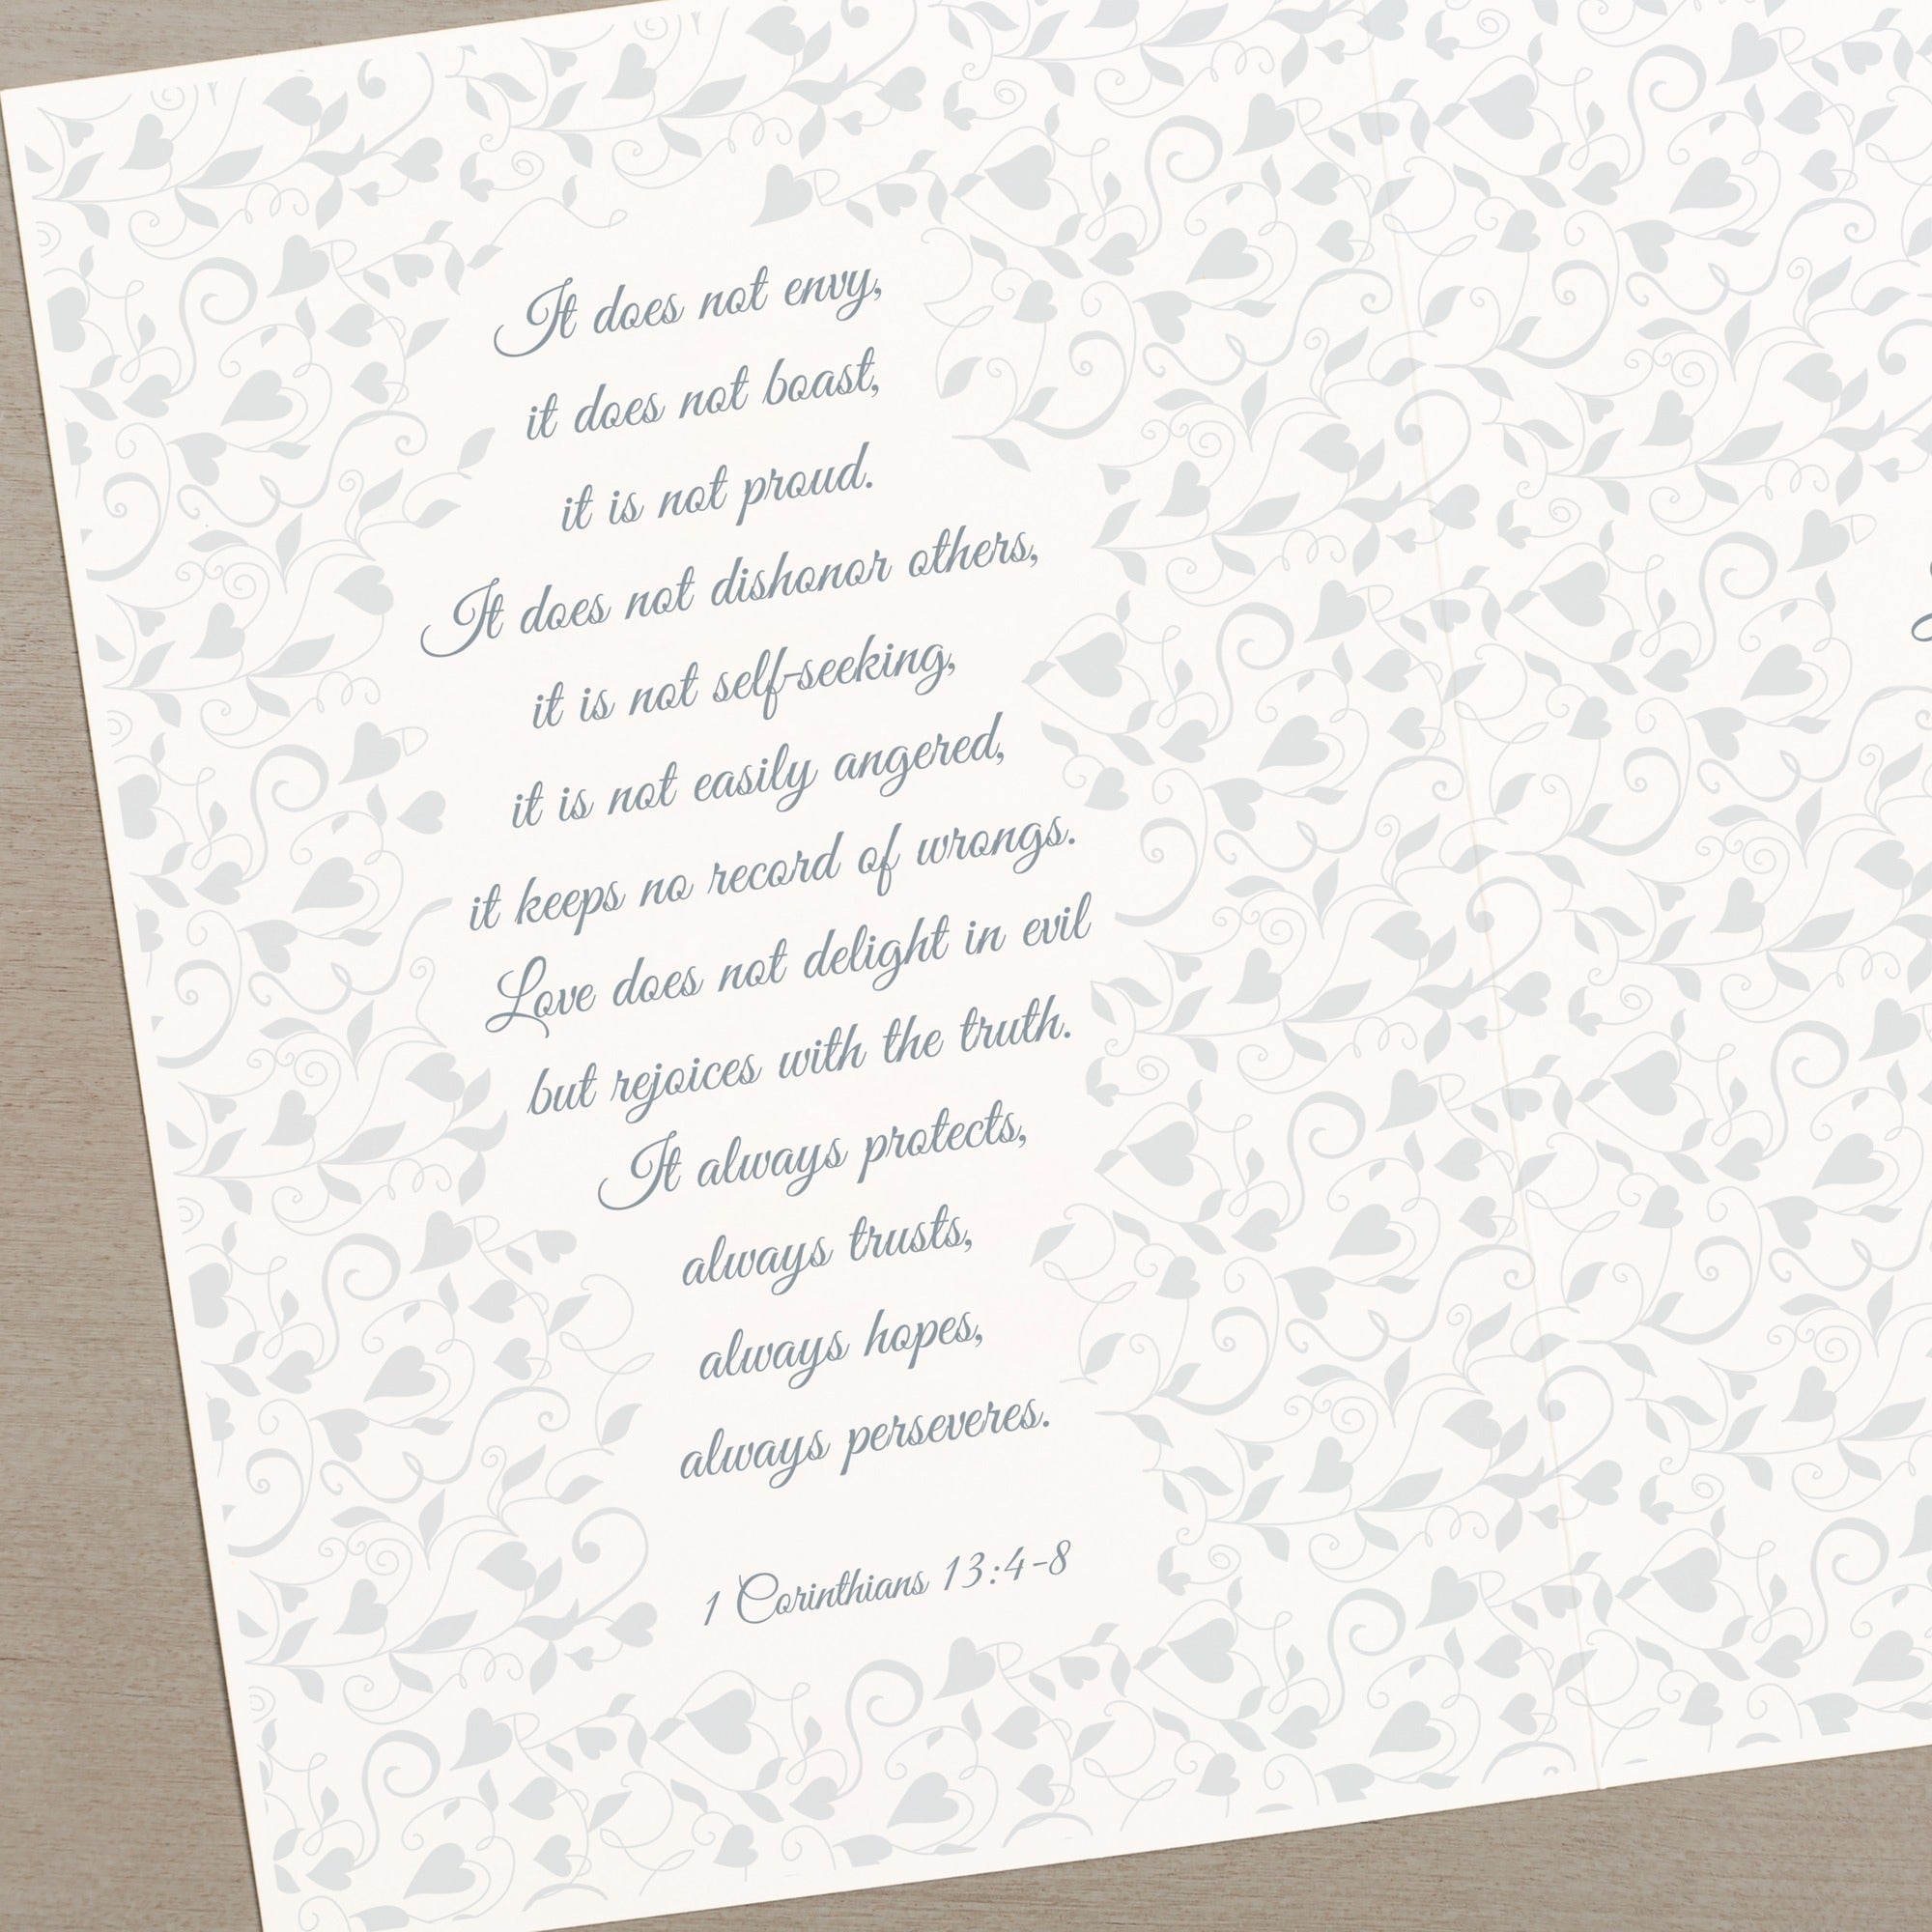 It does not envy,
it does not boast,
it is not proud.
It does not dishonor others,
it is not self-seeking,
it is not easily angered,
it keeps no record of wrongs.
Love does not delight in evil
but rejoices with the truth.
It always protects,
always trusts,
always hopes,
always perseveres.
1 Corinthians 13:4-8